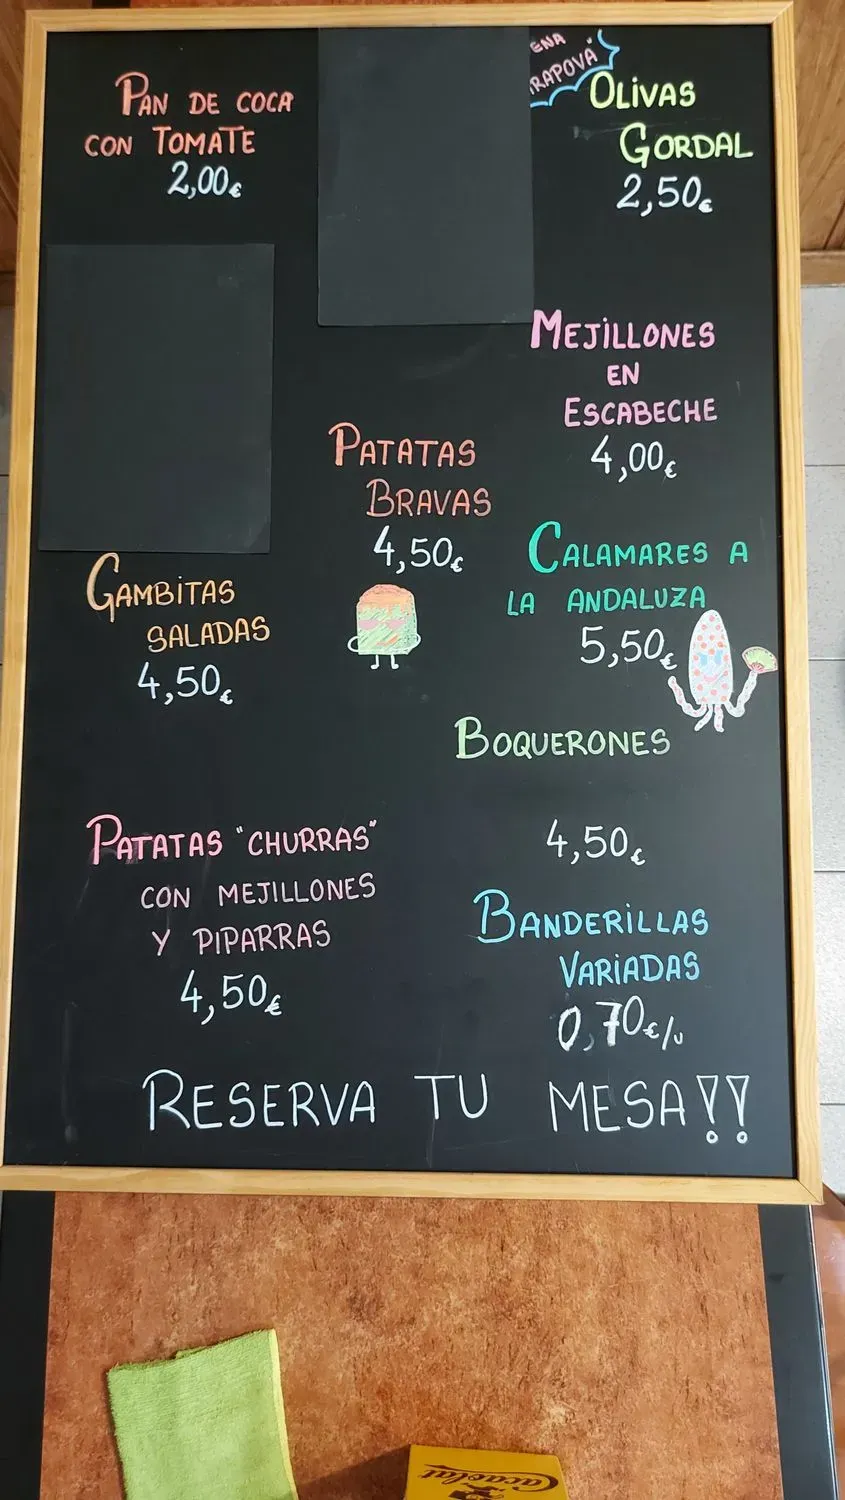 PAN DE COCA
CON TOMATE
2,00€
OLIVAS
GORDAL
2,50€
MEJILLONES
EN
ESCABECHE
4,00€
PATATAS
BRAVAS
4,50€
CALAMARES A
LA ANDALUZA
5,50€
GAMBITAS
SALADAS
4,50€
BOQUERONES
4,50€
PATATAS "CHURRAS"
CON MEJILLONES
Y PIPARRAS
4,50€
BANDERILLAS
VARIADAS
0,70€/u
RESERVA TU MESA!!
Cacaolat